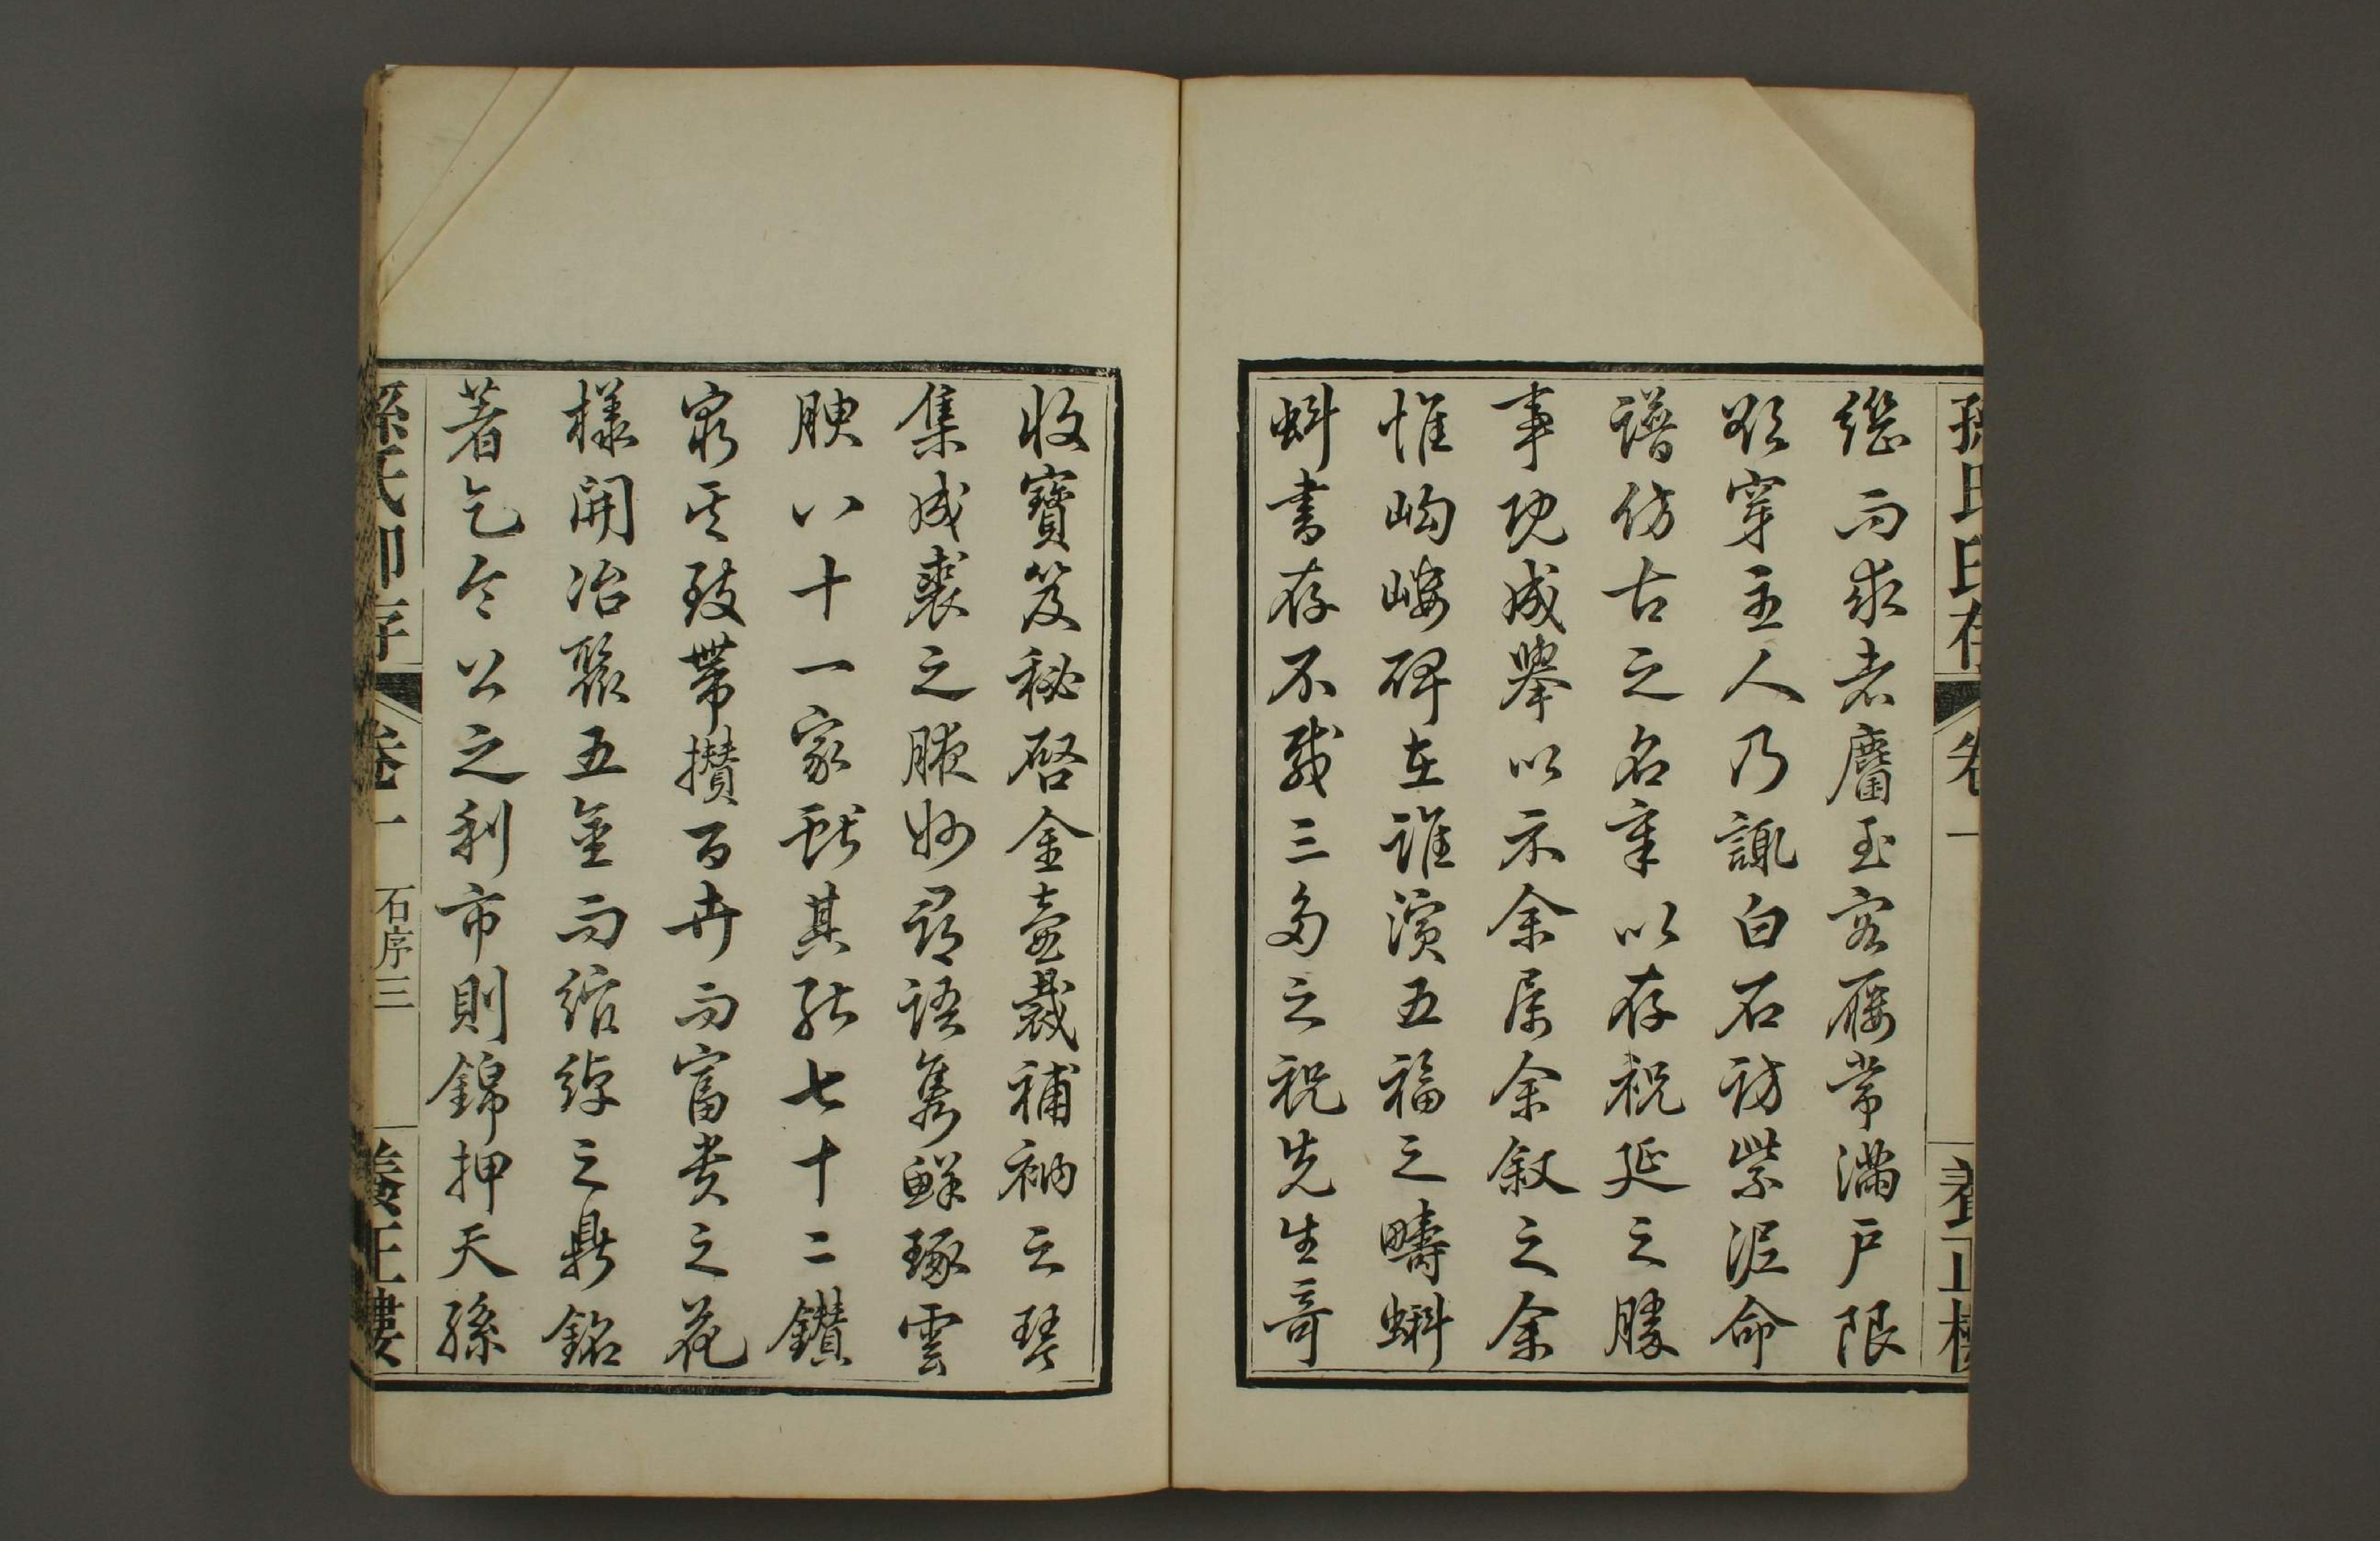 孫氏印存 卷一 養正樓
繼而求者麕至容屨常滿戶限
欲穿主人乃諏白石訪紫泥命
譜仿古之名章以存祝延之勝
事既成舉以示余屬余叙之余
惟岣嶁碑在誰演五福之疇蝌
蚪書存不載三多之祝先生奇
收寶笈秘啓金壺裁補衲之琴
集成裘之腋妙尋語雋鮮琢雲
腴八十一家獻其能七十二鑽
窮其致帶攢百卉而富貴之花
樣開冶聚五金而綰綽之鼎銘
著乞令公之利市則錦押天孫
孫氏印存 卷一 石序三 養正樓